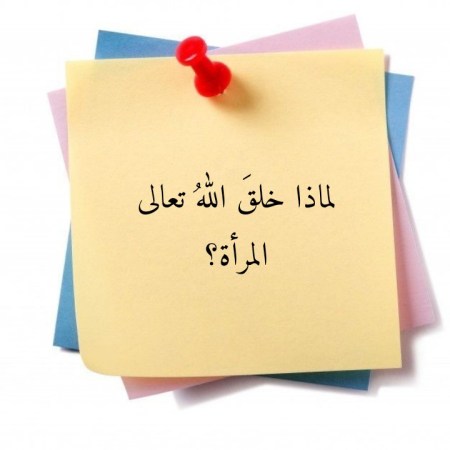 لماذا خلقَ اللهُ تعالى
المرأة؟